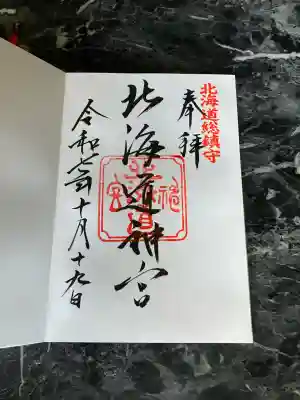 北海道総鎮守
奉拝
北海道神宮
令和七年十月十九日